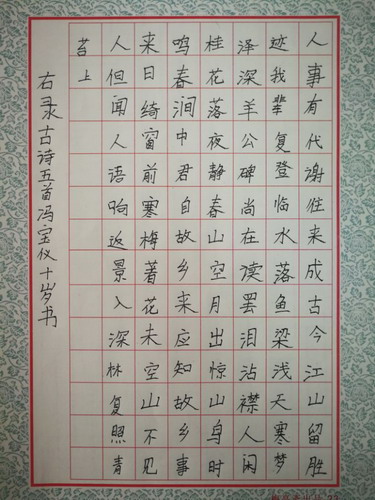 人事有代谢往来成古今江山留胜
迹我辈复登临水落鱼梁浅天寒梦
泽深羊公碑尚在读罢泪沾襟人闲
桂花落夜静春山空月出惊山鸟时
鸣春涧中君自故乡来应知故乡事
来日绮窗前寒梅著花未空山不见
人但闻人语响返景入深林复照青
苔上
右录古诗五首冯宝仪十岁书